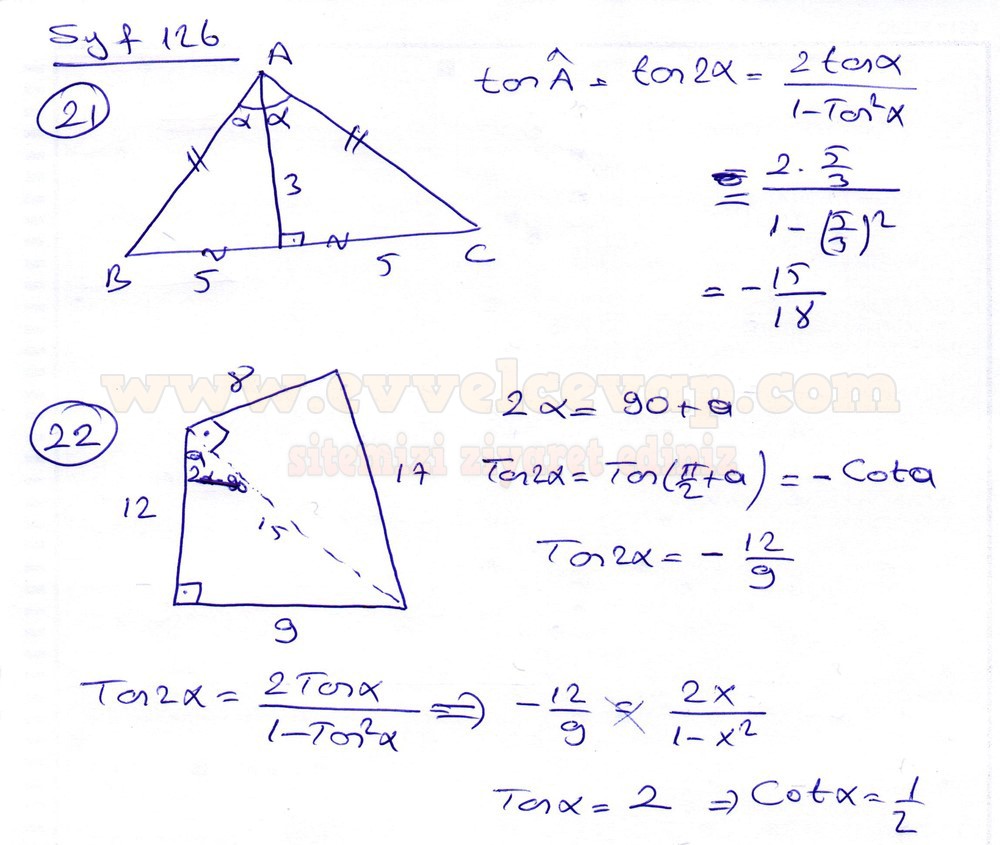 Syf 126
21
A
α α
3
B
5
5
C
tan Â = tan 2α = 2 tanα / 1-Tan²α
= 2 · 5/3 / 1-(5/3)²
= - 15/18
www.evvelcevap.com
sitemizi ziyaret ediniz
22
8
a
2α-90
12
15
17
9
2α = 90+a
Tan2α = Tan(π/2+a) = -Cota
Tan2α = - 12/9
Tan2α = 2Tanα / 1-Tan²α ⇒ - 12/9 = 2x / 1-x²
Tanα = 2 ⇒ Cotα = 1/2